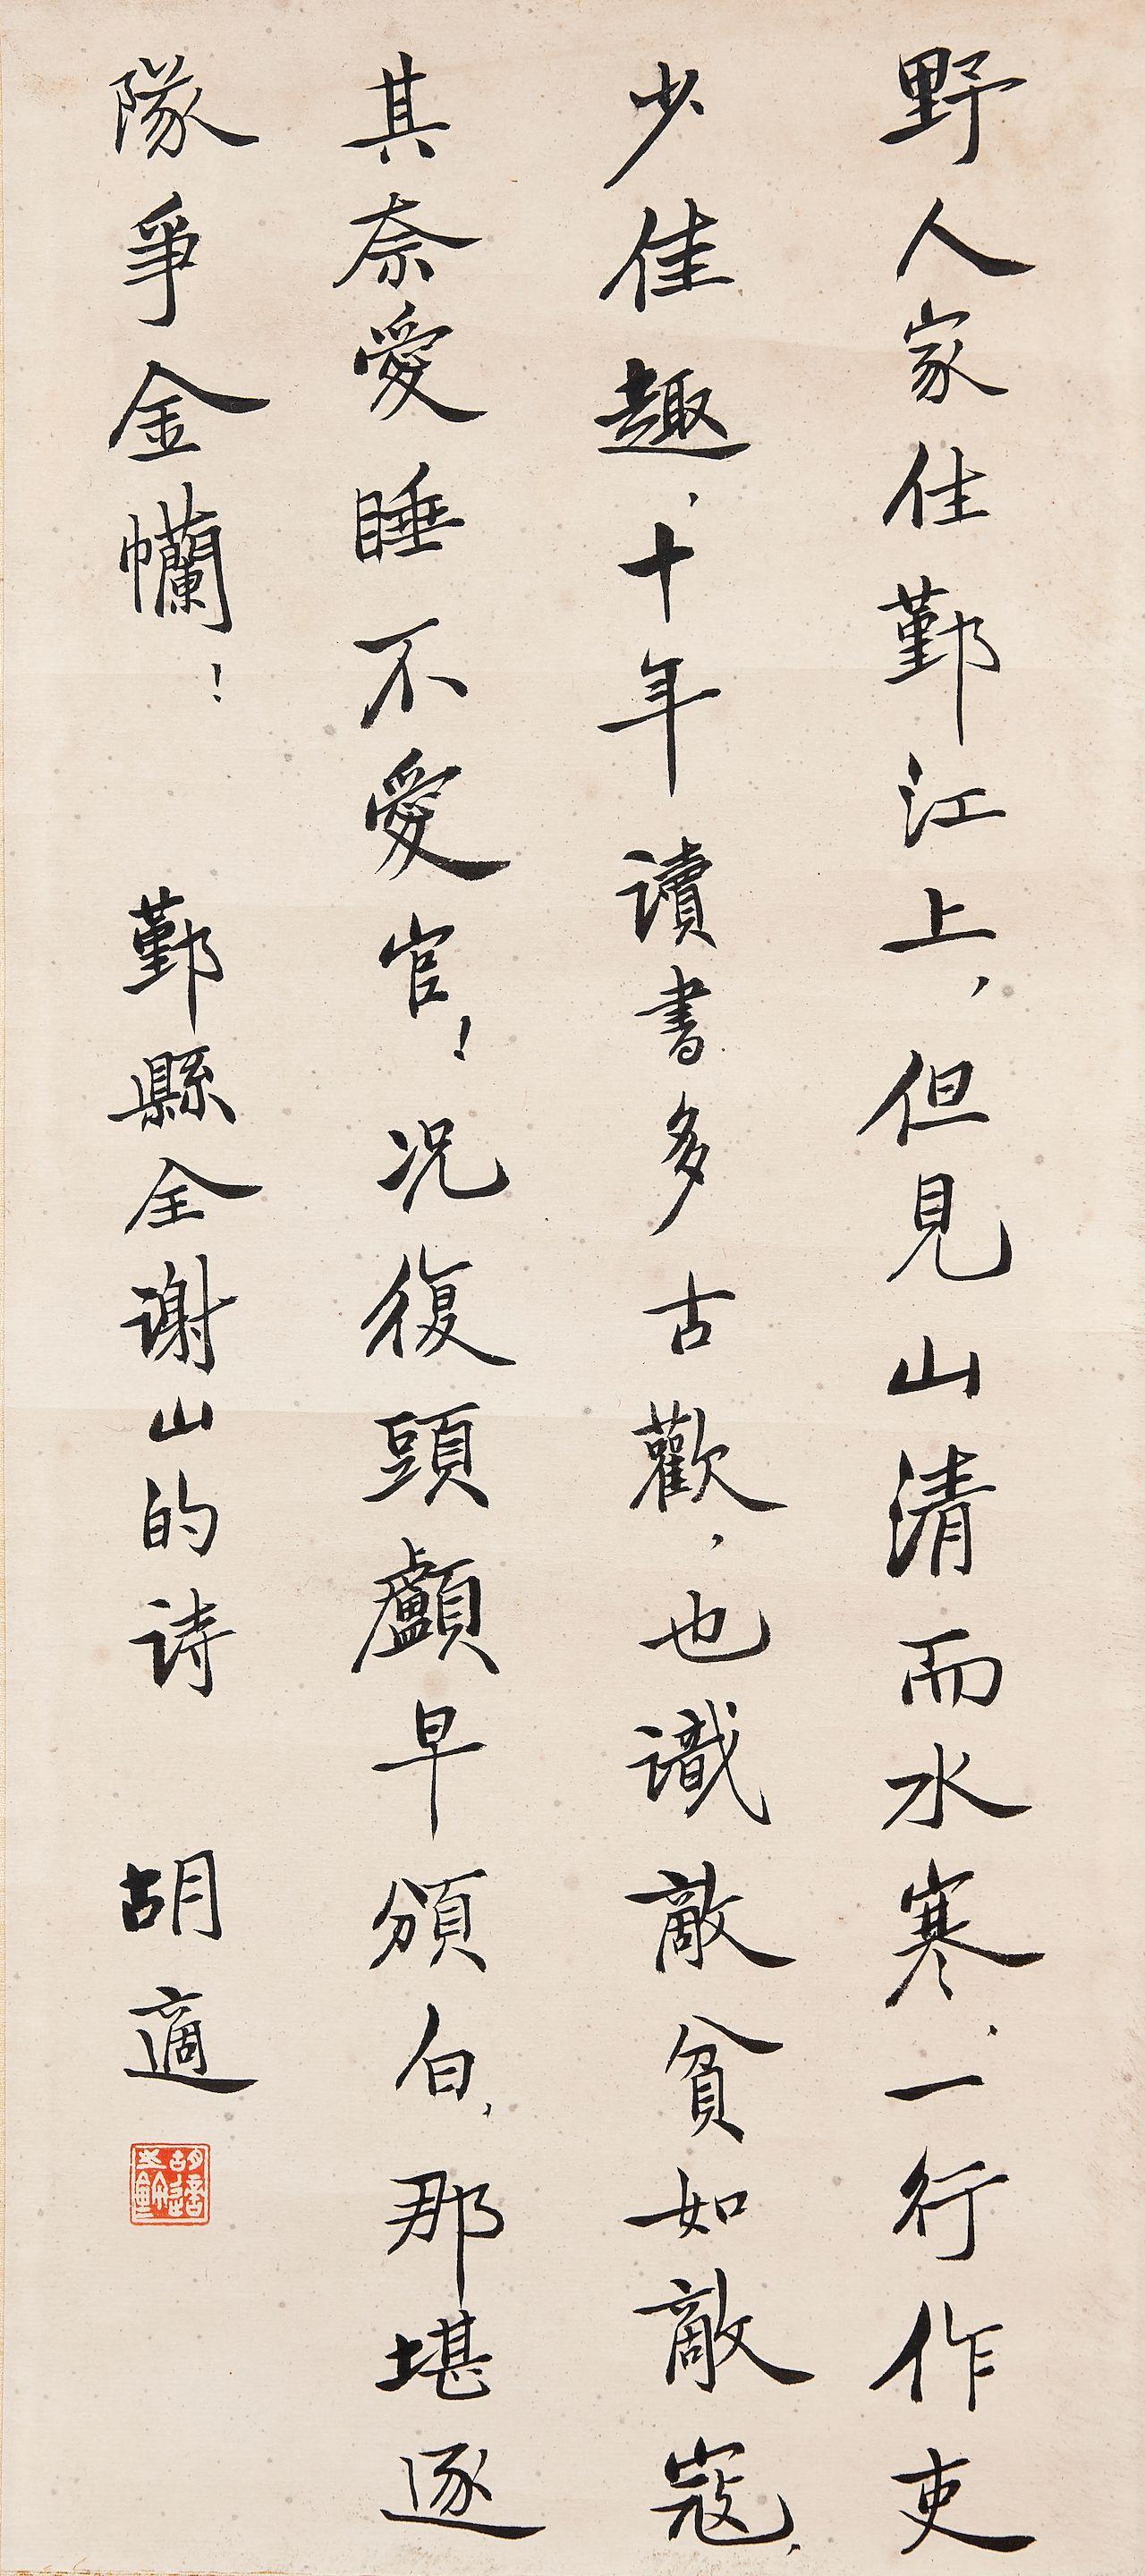 野人家住鄞江上，但見山清而水寒．一行作吏
少佳趣，十年讀書多古歡，也識敵貧如敵寇，
其奈愛睡不愛官！况復頭顱早頒白，那堪逐
隊爭金幱！　鄞縣全谢山的诗　胡適
胡適之鉨